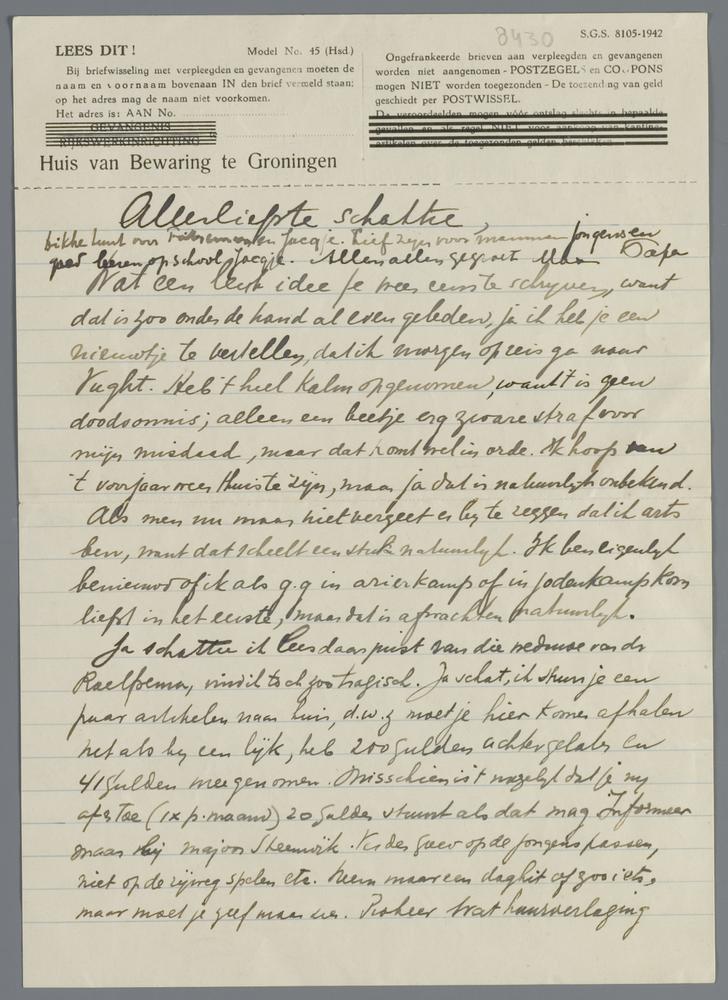 8430
S.G.S. 8105-1942
LEES DIT!
Model No. 45 (Hsd.)
Bij briefwisseling met verpleegden en gevangenen moeten de
naam en voornaam bovenaan IN den brief vermeld staan;
op het adres mag de naam niet voorkomen.
Het adres is: AAN No.
GEVANGENIS
RIJKSWERKINRICHTING
Huis van Bewaring te Groningen
Ongefrankeerde brieven aan verpleegden en gevangenen
worden niet aangenomen - POSTZEGELS en COUPONS
mogen NIET worden toegezonden - De toezending van geld
geschiedt per POSTWISSEL.
De veroordeelden mogen vóór ontslag slechts in bepaalde
gevallen en als regel NIET voor aankoop van kantine-
artikelen over de toegezonden gelden beschikken.
Allerliefste schattie,
dikke kunt voor en Jacqje. Lief zijn voor mamma jongens en
goed leeren op school Jacqje. Allen allen gegroet Papa
Wat een leuk idee je weer eens te schrijven, want
dat is zoo onder de hand al even geleden, ja ik heb je een
nieuwtje te vertellen, dat ik morgen op reis ga naar
Vught. Heb 't heel kalm opgenomen, want 't is geen
doodvonnis; alleen een beetje erg zware straf voor
mijn misdaad, maar dat komt wel in orde. Ik hoop van
't voorjaar weer thuis te zijn, maar ja dat is natuurlijk onbekend.
Als men nu maar niet vergeet er bij te zeggen dat ik arts
ben, want dat scheelt een stuk natuurlijk. Ik ben eigenlijk
benieuwd of ik als g.g in arierkamp of in jodenkamp kom
liefst in het eerste, maar dat is afwachten natuurlijk.
Ja schattie ik lees daar juist van die weduwe van dr
Roelfsema, vind ik toch zoo tragisch. Ja schat, ik stuur je een
paar artikelen naar huis, d.w.z moet je hier komen afhalen
net als bij een lijk, heb 200 gulden achtergelaten en
41 gulden meegenomen. Misschien is 't mogelijk dat je mij
af en toe (1x p. maand) 20 gulden stuurt als dat mag. Informeer
maar bij majoor Steenwijk. Verder goed op de jongens passen,
niet op de rijweg spelen etc. Neem maar een daghit of zoo iets,
maar moet je zelf maar zien. Probeer wat huurverlaging